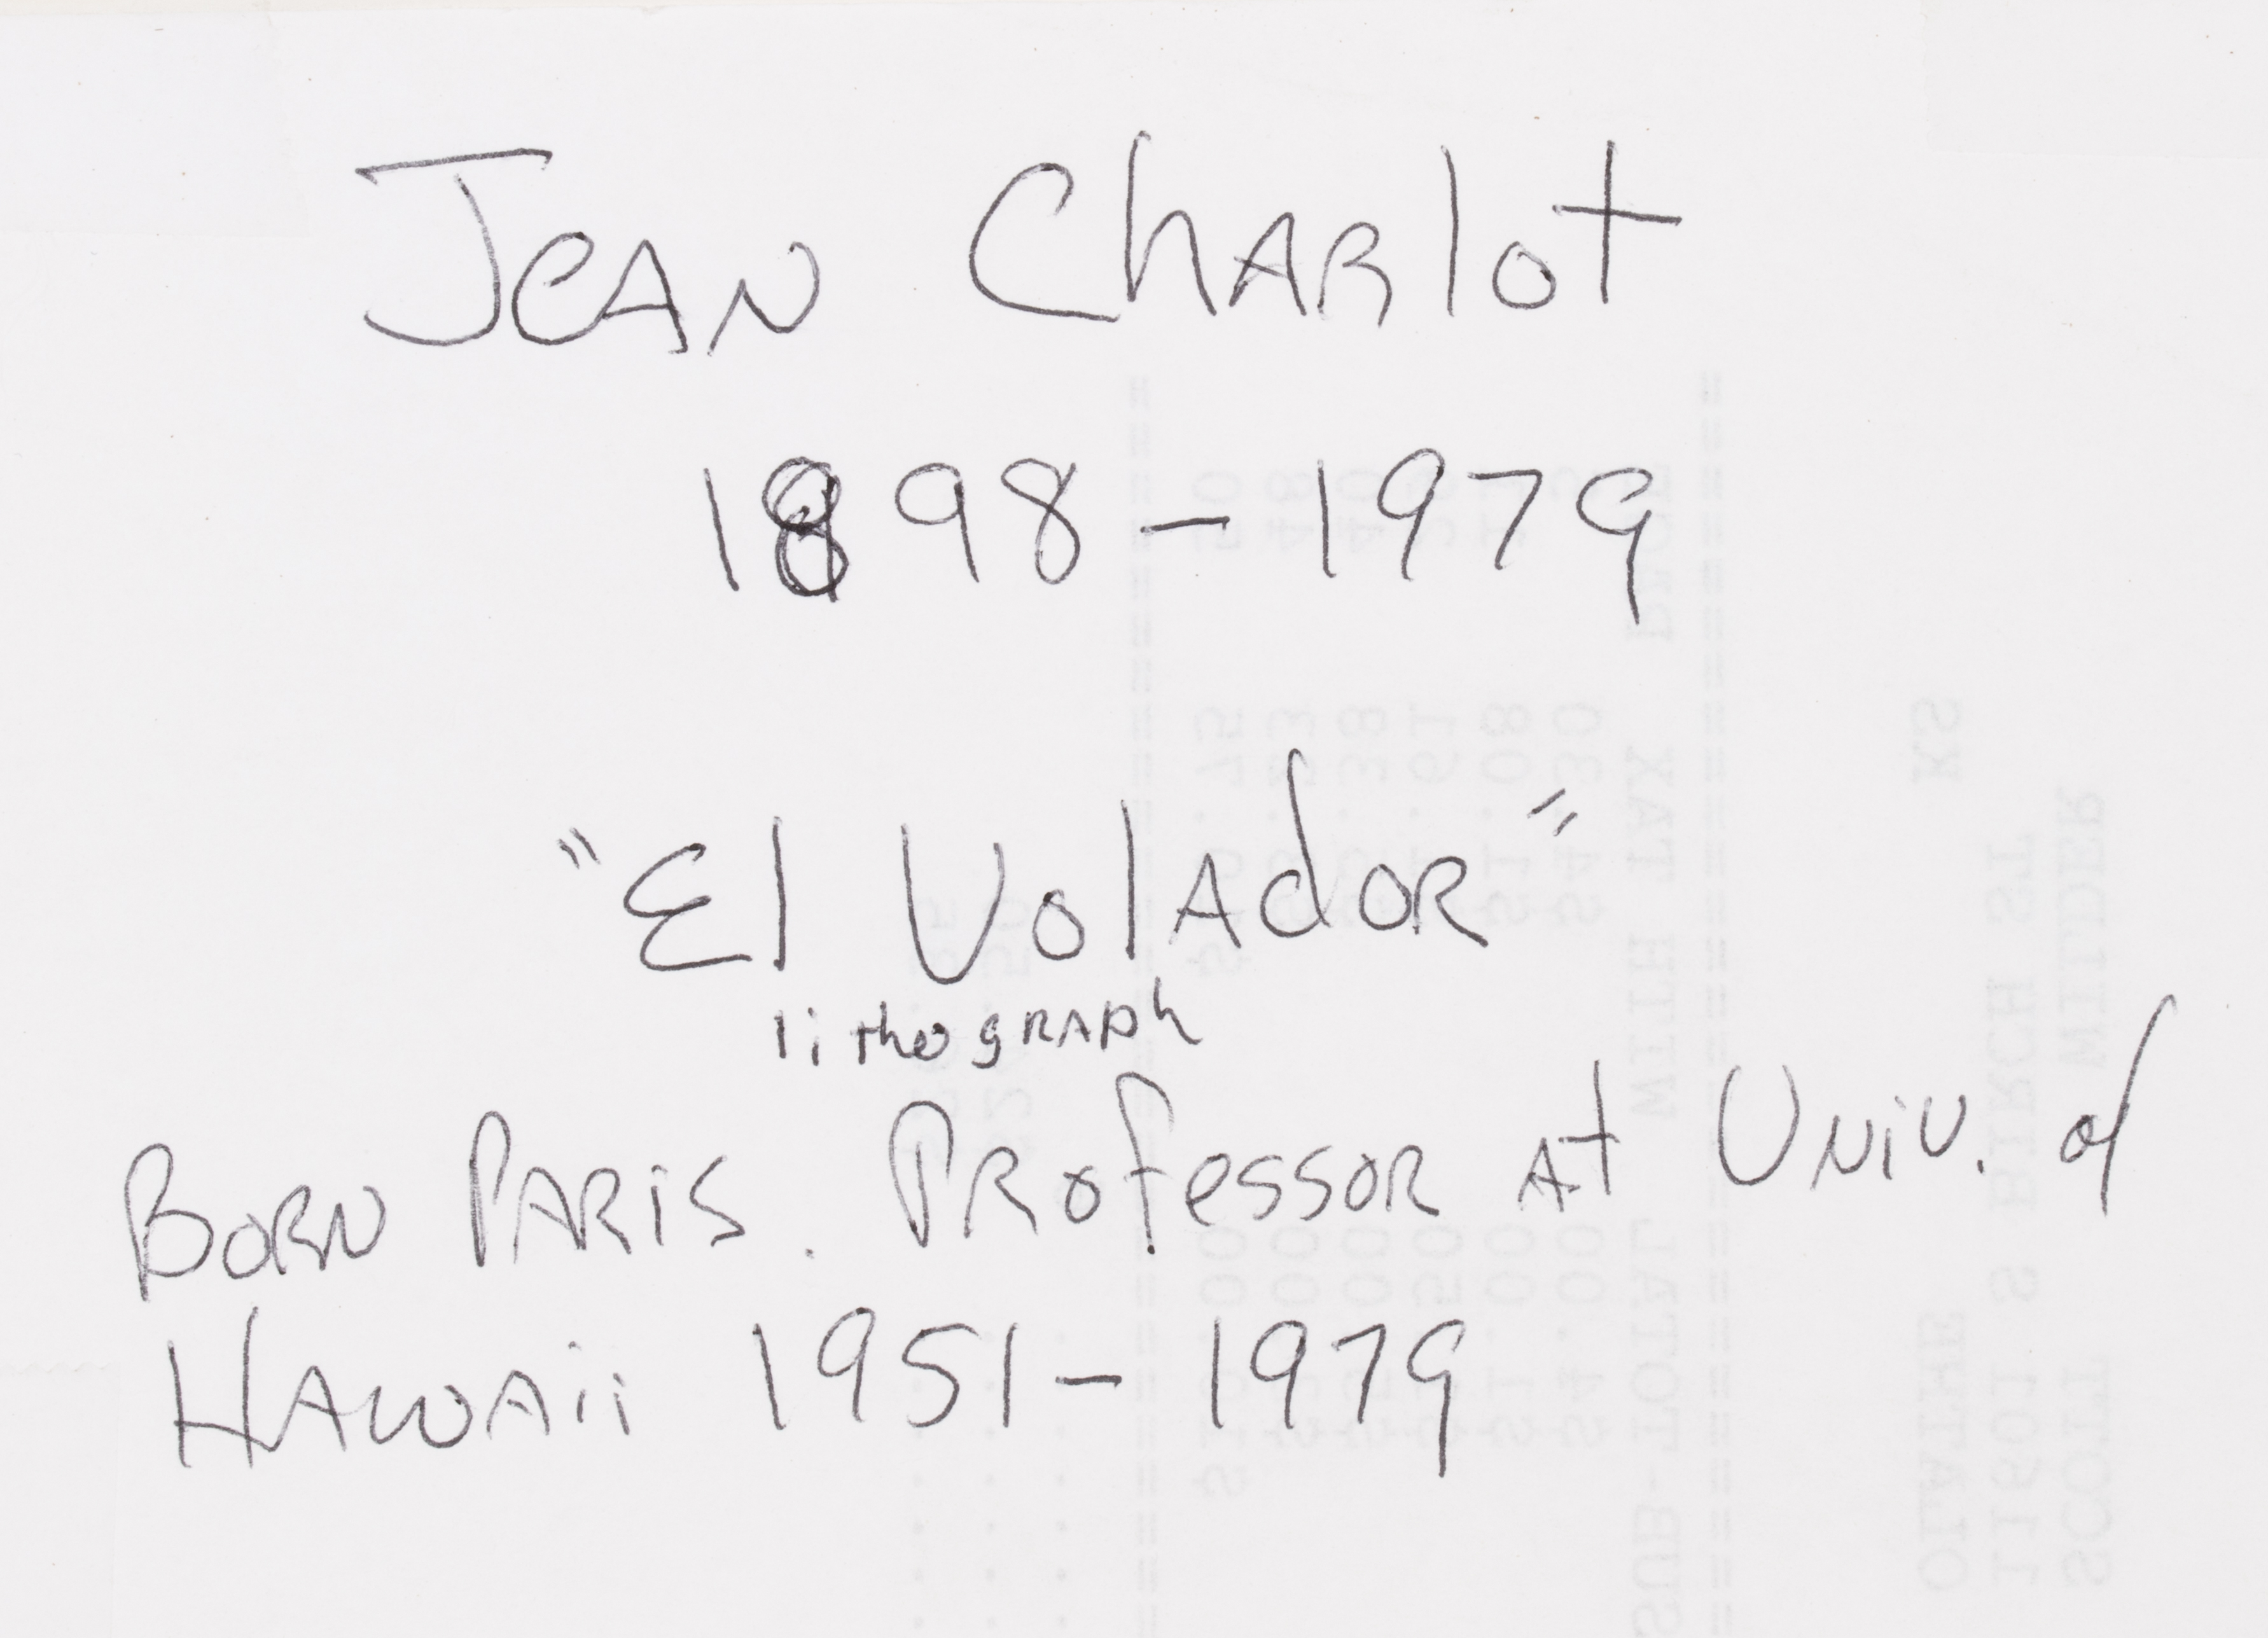 Jean Charlot
1898-1979
"El Volador"
lithograph
Born Paris. Professor at Univ. of
Hawaii 1951-1979